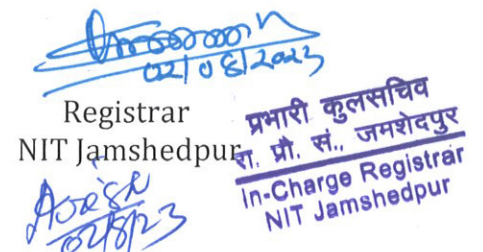 02/08/2023
Registrar
NIT Jamshedpur
प्रभारी कुलसचिव
रा. प्रौ. सं., जमशेदपुर
In-Charge Registrar
NIT Jamshedpur
02/8/23